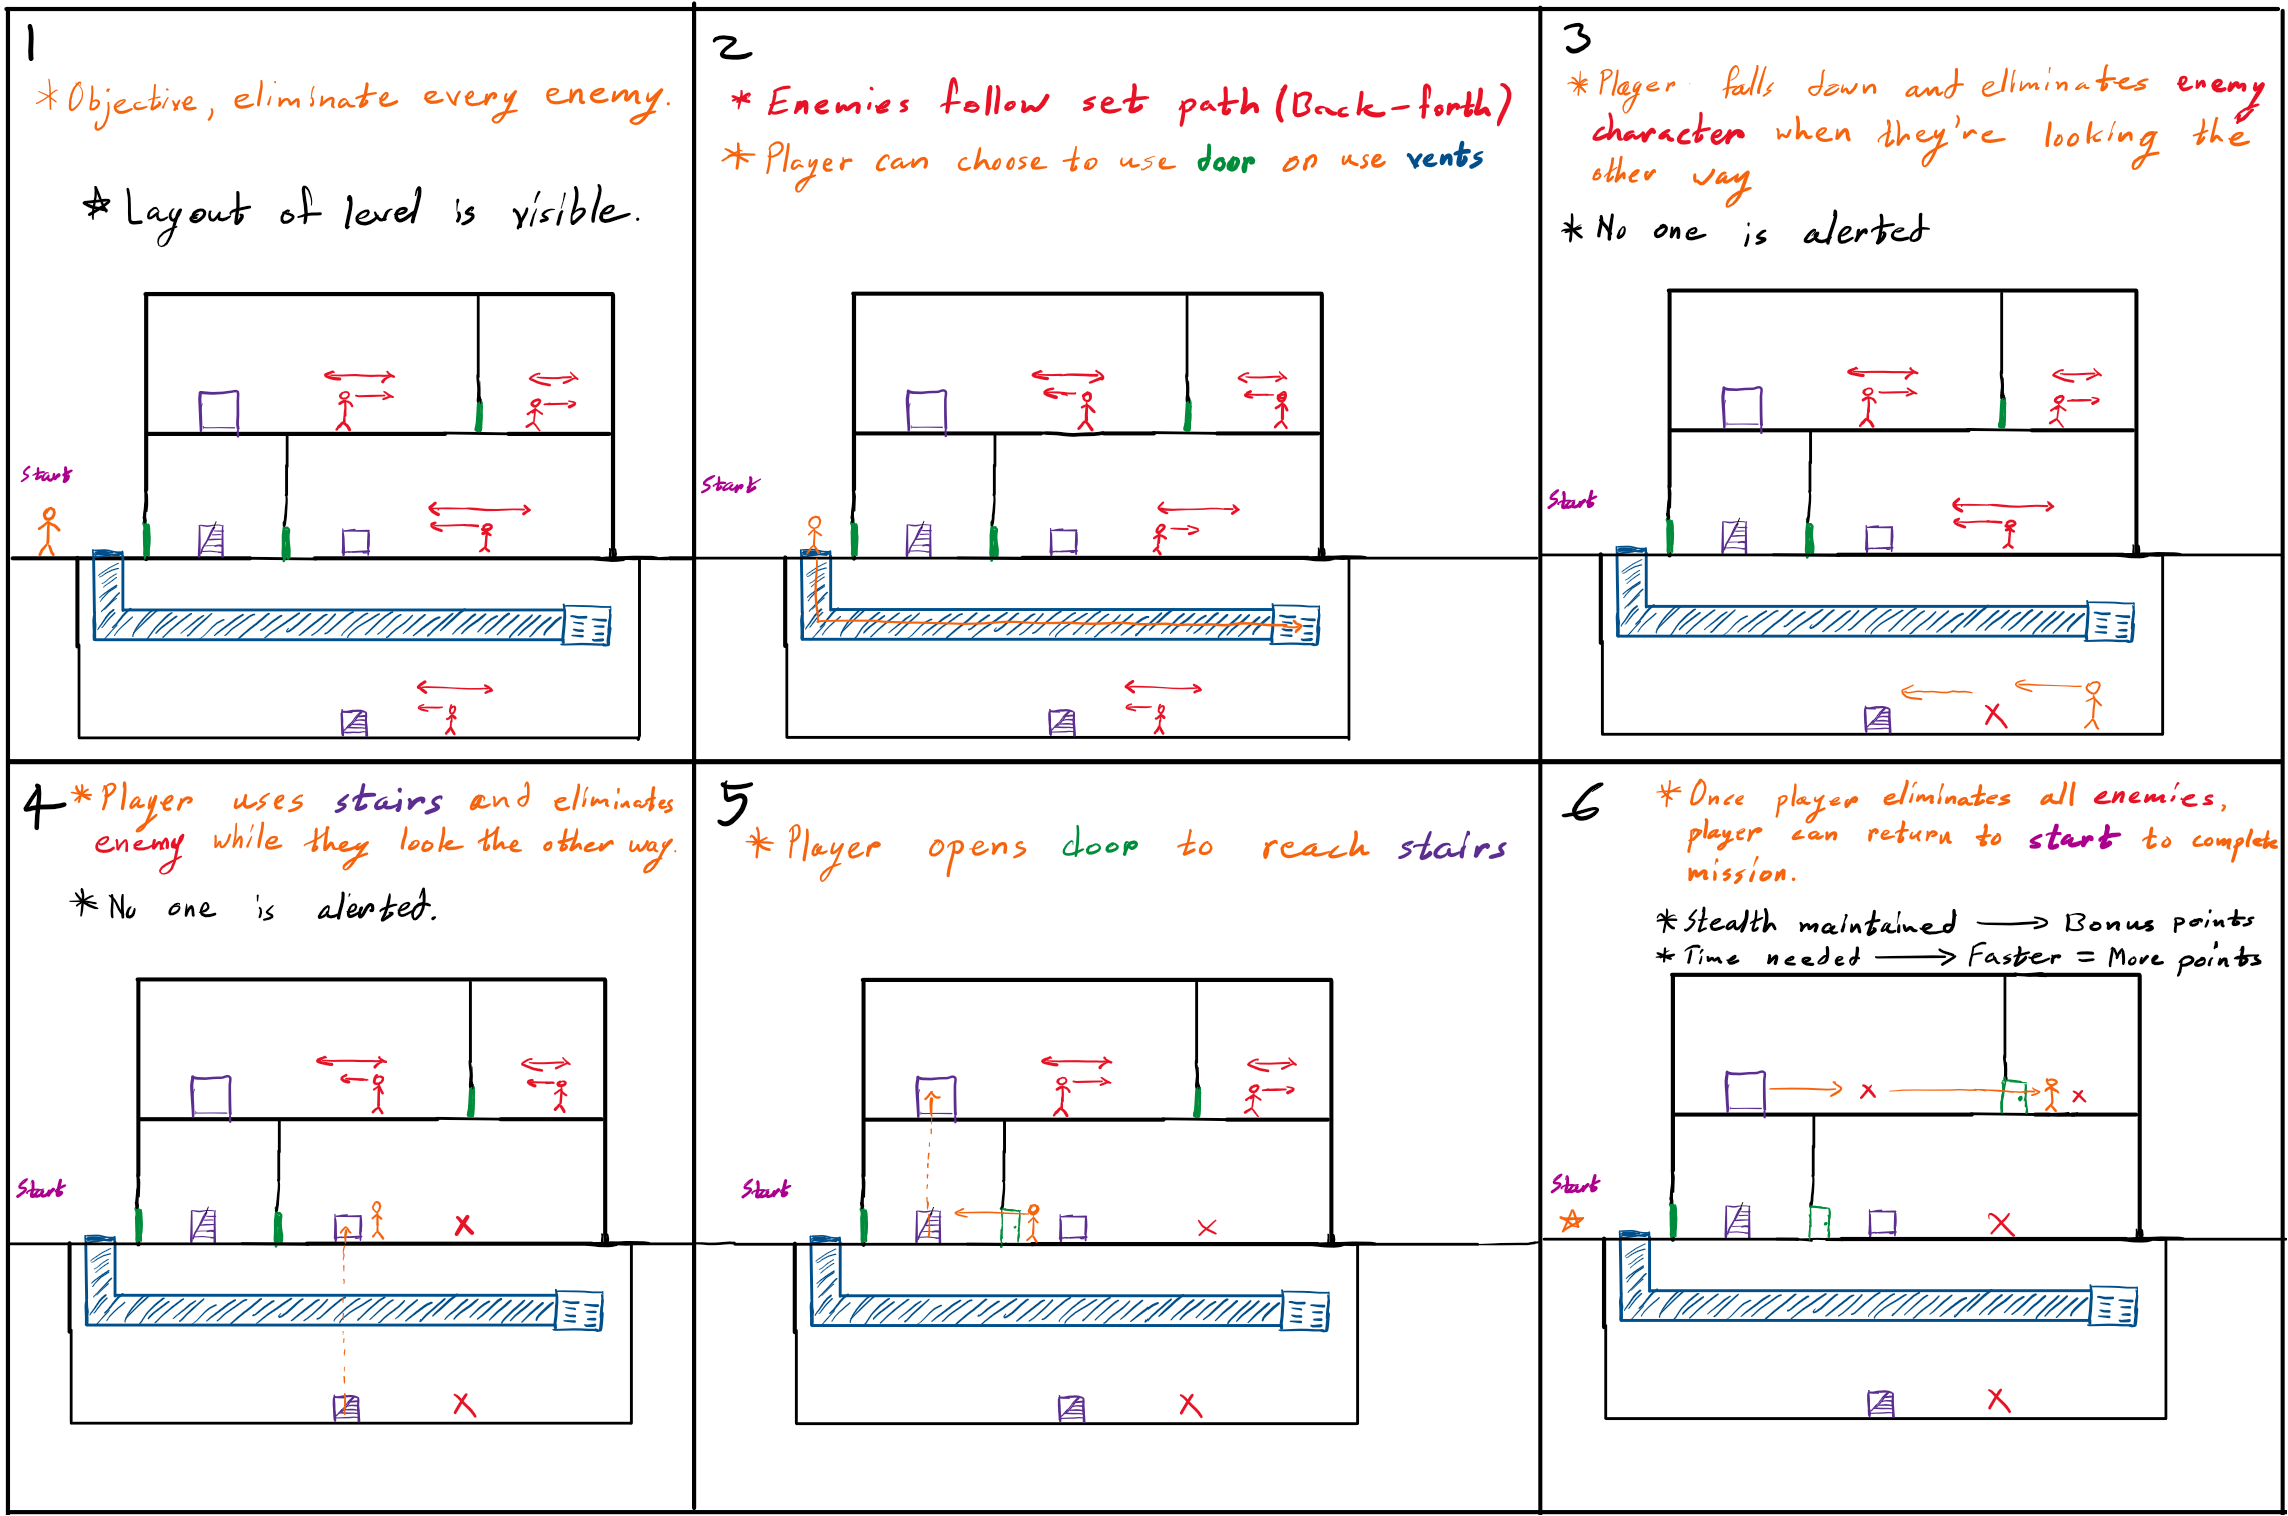 1
* Objective, eliminate every enemy.
* Layout of level is visible.
Start
2
* Enemies follow set path (Back-forth)
* Player can choose to use door or use vents
Start
3
* Player falls down and eliminates enemy
character when they're looking the
other way
* No one is alerted
Start
4
* Player uses stairs and eliminates
enemy while they look the other way.
* No one is alerted.
Start
5
* Player opens door to reach stairs
Start
6
* Once player eliminates all enemies,
player can return to start to complete
mission.
* Stealth maintained → Bonus points
* Time needed → Faster = More points
Start